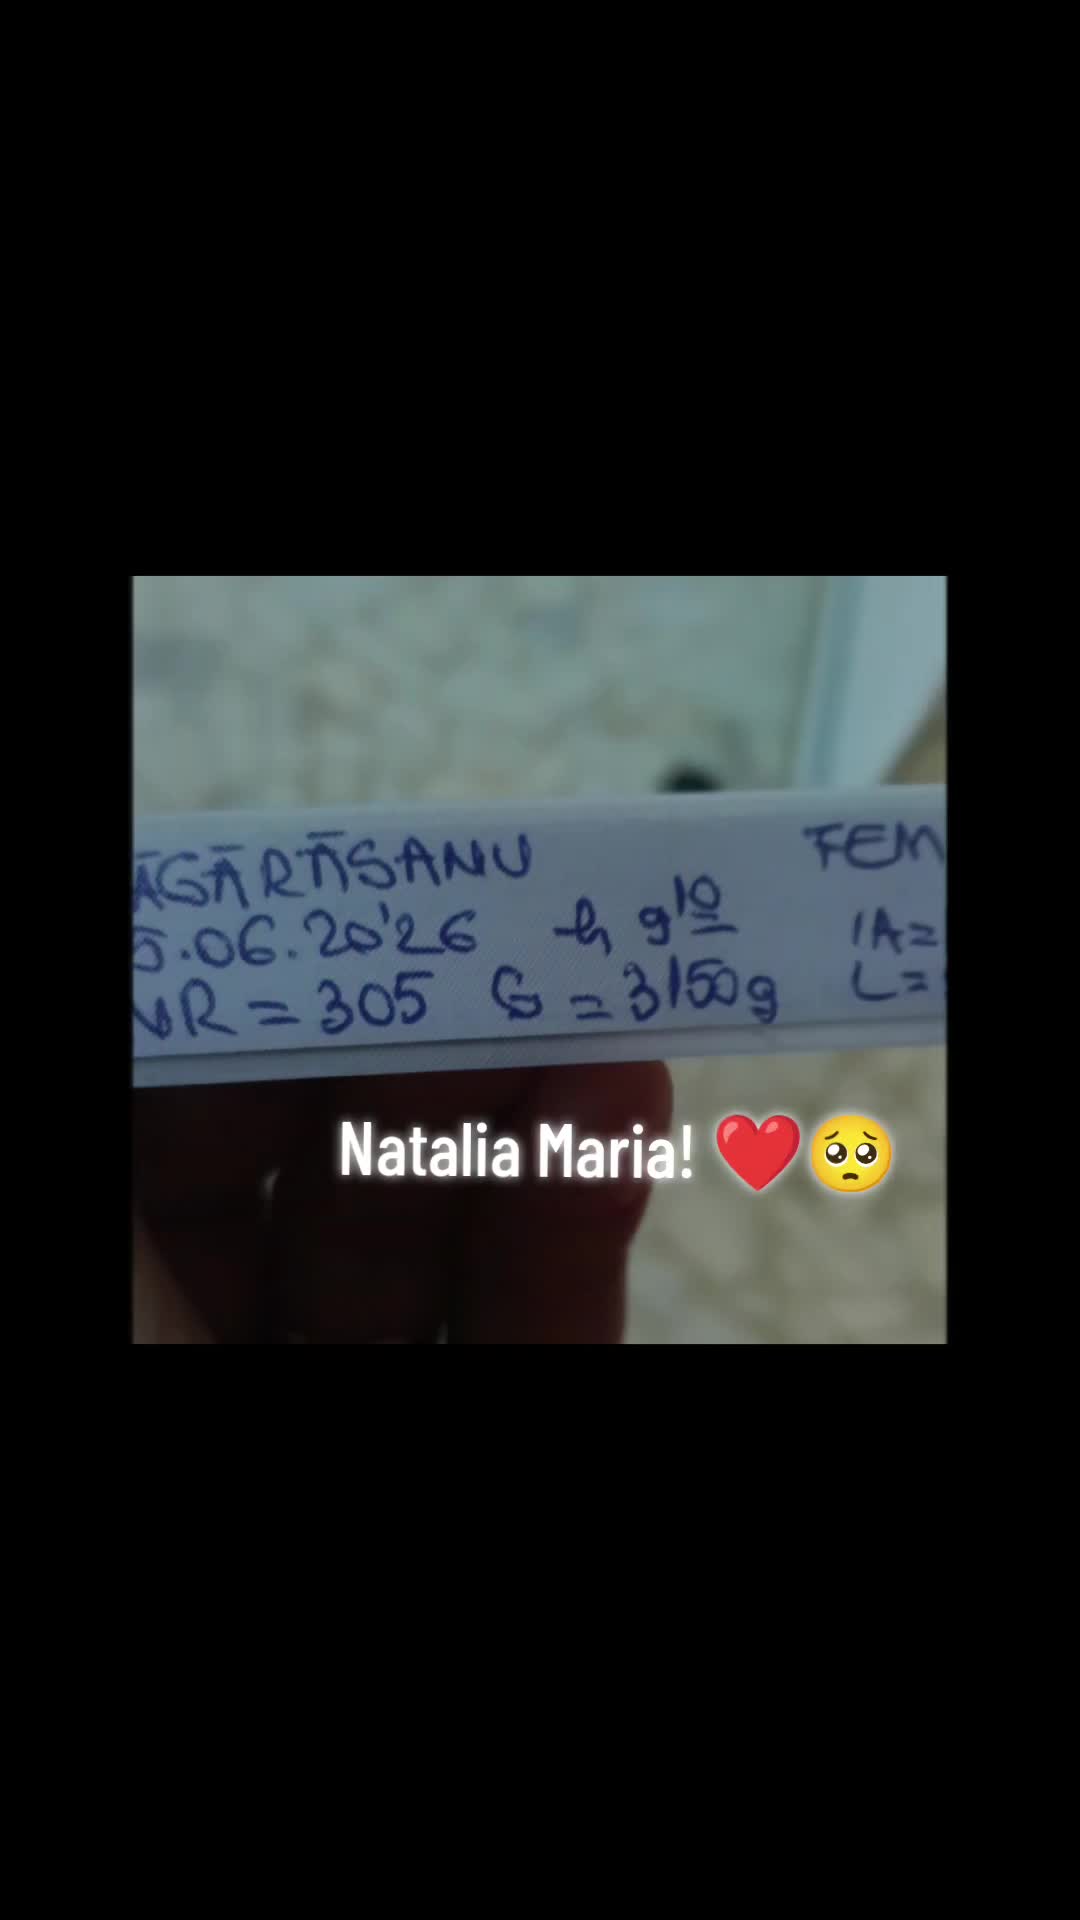 ĀGĀRĀSANU FEM
5.06.20'26 h 9 10 IA=
NR = 305 G = 3150g L=
Natalia Maria! ❤️🥺